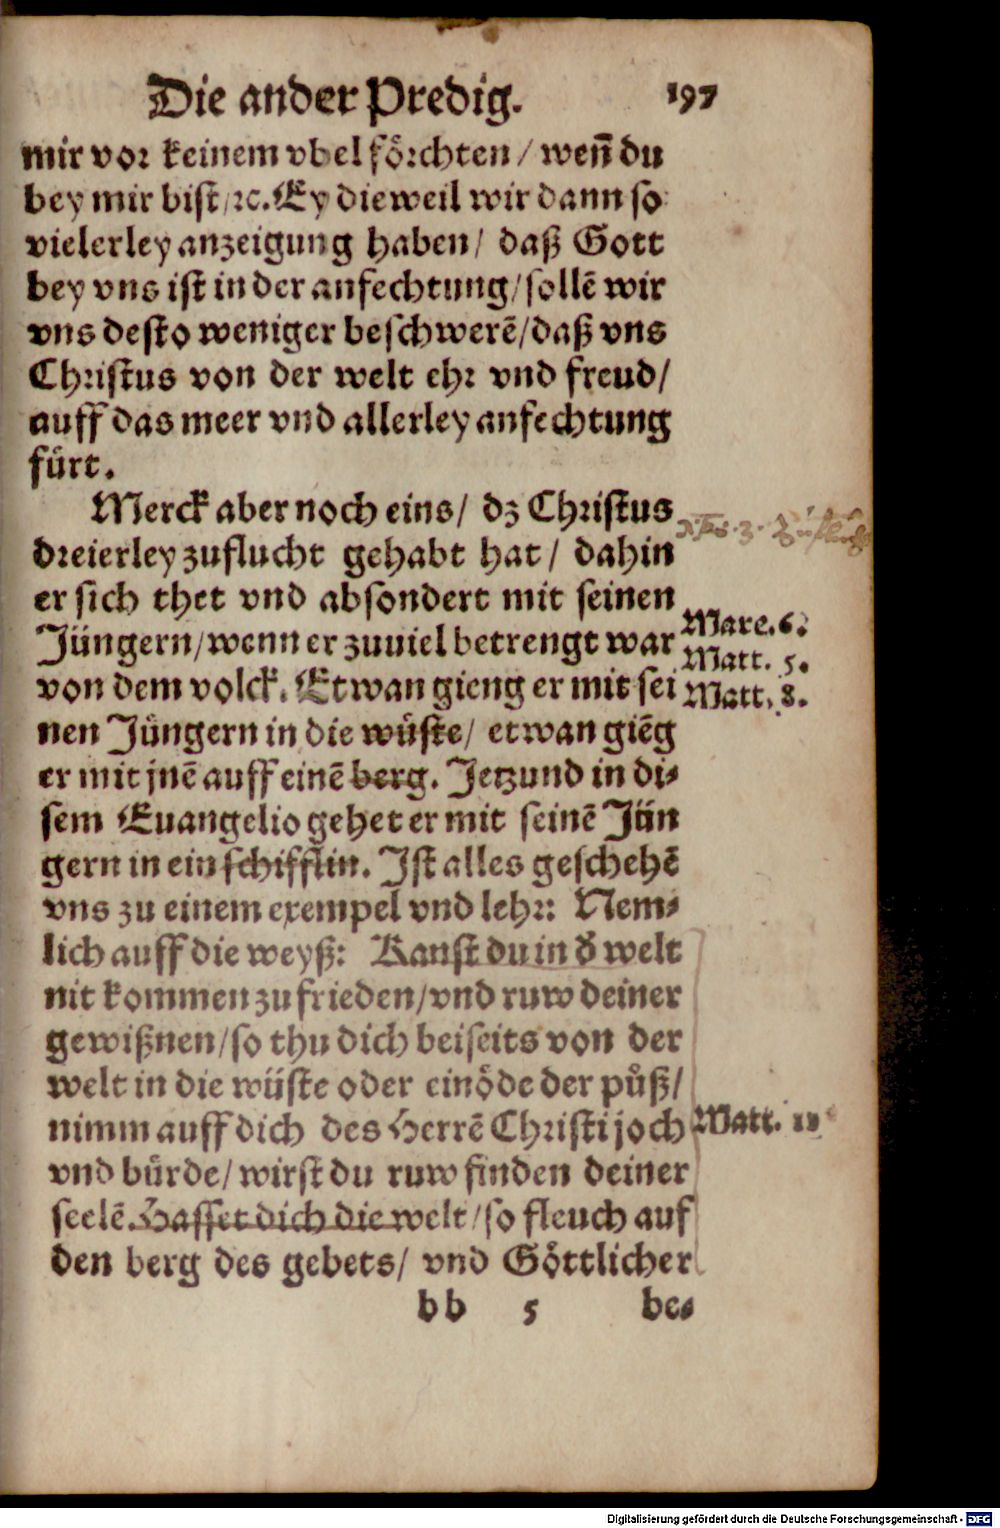 Die ander Predig. 197
mir vor keinem vbel förchten / weñ du
bey mir bist / ꝛc. Ey dieweil wir dann so
vielerley anzeigung haben / daß Gott
bey vns ist in der anfechtung / sollē wir
vns desto weniger beschwerē / daß vns
Christus von der welt ehr vnd freud /
auff das meer vnd allerley anfechtung
fürt.
Merck aber noch eins / dz Christus
dreierley zuflucht gehabt hat / dahin
er sich thet vnd absondert mit seinen
Jüngern / wenn er zuuiel betrengt war
Marc. 6.
Matt. 5.
von dem volck. Etwan gieng er mit sei
Matt. 8.
nen Jüngern in die wüste / etwan giēg
er mit jnē auff einē berg. Jetzund in di⸗
sem Euangelio gehet er mit seinē Jün
gern in ein schifflin. Ist alles geschehē
vns zu einem exempel vnd lehr: Nem⸗
lich auff die weyß: Kanst du in d̄ welt
nit kommen zu frieden / vnd ruw deiner
gewißnen / so thu dich beiseits von der
welt in die wüste oder einöde der půß /
nimm auff dich des Herrē Christi joch
Matt. 11
vnd bürde / wirst du ruw finden deiner
seelē. Hasset dich die welt / so fleuch auf
den berg des gebets / vnd Göttlicher
bb 5 be⸗
Digitalisierung gefördert durch die Deutsche Forschungsgemeinschaft - DFG